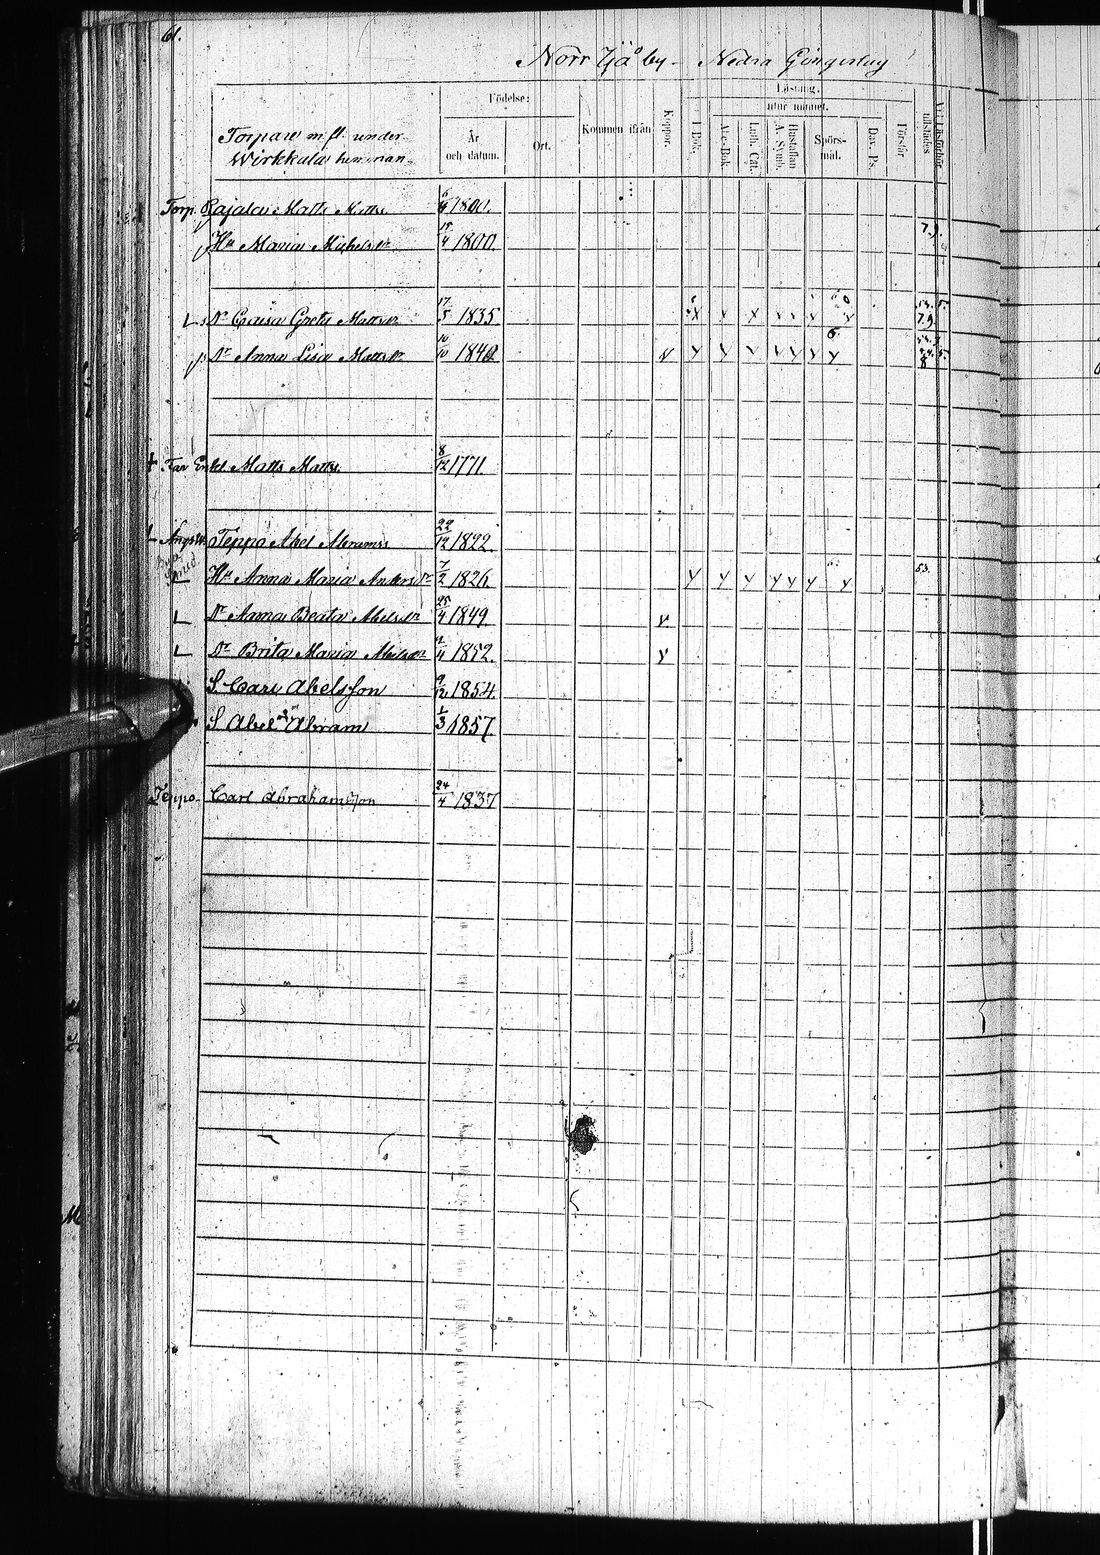 61.
Norr Ijå by - Nedra
Torpare m. fl. under
Wirkkala hemman
Födelse:
År
och datum.
Ort.
Kommen ifrån
Koppor.
Läsning.
utur minnet.
I Bok.
Abc-Bok.
Luth. Cat.
Hustaflan
A. Symb.
Spörs-
mål.
Dav. Ps.
Förstår
Torp. Rajala Matts Matts. 1800.
Hu Maria Michels Dr 15/4 1800 7.9.
L Dr Caisa Greta Matts Dr 17/5 1835 7.9.
Dr Anna Lisa Matts Dr
Far Enkl Matts Matts. 8/12 1771
L Teppo Abel Abramss 22/12 1822.
Hu Anna Maria Anders Dr 7/2 1826 53.
L Dr Anna Beata Abels Dr 25/4 1849
L Dr Brita Maria Abels Dr 1852.
S. Carl Abelsson 9/12 1854
S Abel Abram 1/3 1857
Teppo. Carl Abrahamsson 24/4 1837
M